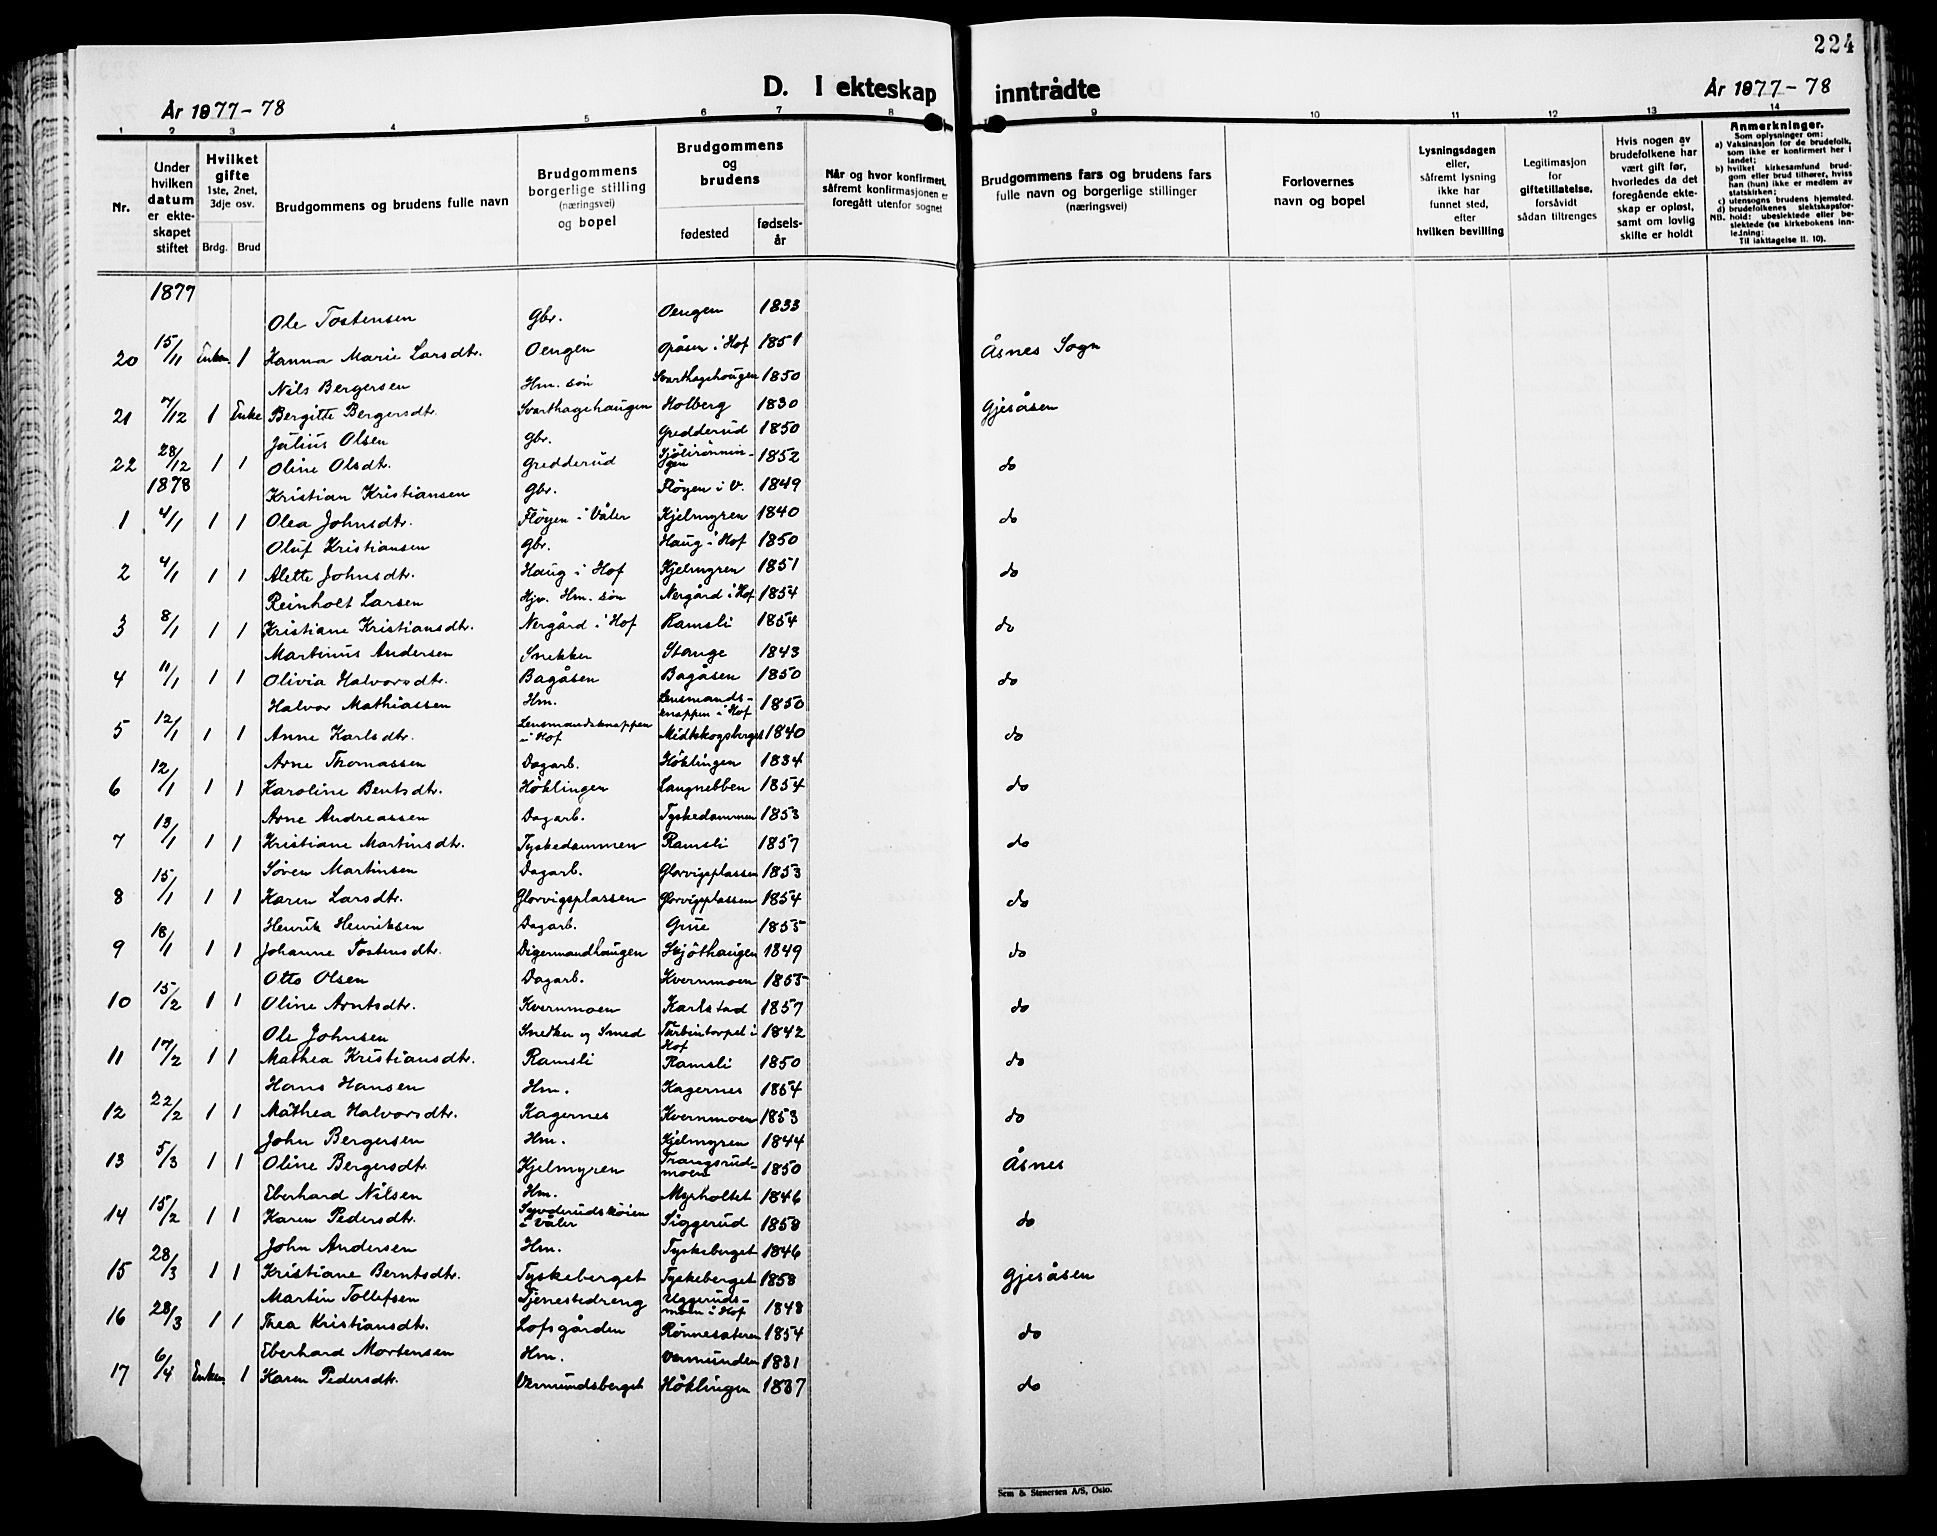 224
D. I ekteskap inntrådte
År 1877-78
År 1877-78
1 2 3 4 5 6 7 8 9 10 11 12 13 14
Nr.
Under hvilken datum er ekteskapet stiftet
Hvilket gifte 1ste, 2net, 3dje osv.
Brdg. Brud
Brudgommens og brudens fulle navn
Brudgommens borgerlige stilling (næringsvei) og bopel
Brudgommens og brudens
fødested
fødselsår
Når og hvor konfirmert, såfremt konfirmasjonen er foregått utenfor sognet
Brudgommens fars og brudens fars fulle navn og borgerlige stillinger (næringsvei)
Forlovernes navn og bopel
Lysningsdagen eller, såfremt lysning ikke har funnet sted, efter hvilken bevilling
Legitimasjon for giftetillatelse, forsåvidt sådan tiltrenges
Hvis nogen av brudefolkene har vært gift før, hvorledes da det foregående ekteskap er opløst, samt om lovlig skifte er holdt
Anmerkninger.
Som oplysninger om:
a) Vaksinasjon for de brudefolk, som ikke er konfirmert her i landet;
b) hvilket kirkesamfund brudgom eller brud tilhører, hvis han (hun) ikke er medlem av statskirken;
c) utensogns brudens hjemsted.
d) brudefolkenes slektskapsforhold: ubeslektede eller beslektede (se kirkebokens innledning:
NB.
Til iakttagelse II. 10).
1877
Ole Tostensen Gbr. Oengen 1833
20 15/11 Enkem. 1 Hanna Marie Larsdtr. Oengen Opåsen i Hof 1851 Åsnes Sogn
Nils Bergersen Hm. søn Svarthagehaugen 1850
21 7/12 1 Enke Bergitte Bergersdtr. Svarthagehaugen Holberg 1830 Gjesåsen
Julius Olsen Gbr. Gredderud 1850
22 28/12 1 1 Oline Olsdtr. Gredderud Sjölirönningen 1852 do
1878
Kristian Kristiansen Gbr. Fløyen i V. 1849
1 4/1 1 1 Olea Johnsdtr. Fløyen i Våler Kjelmyren 1840 do
Oluf Kristiansen Gbr. Haug i Hof 1850
2 4/1 1 1 Alette Johnsdtr. Haug i Hof Kjelmyren 1851 do
Reinholt Larsen Hjv. Hm. søn Nergård i Hof 1854
3 8/1 1 1 Kristiane Kristiansdtr. Nergård i Hof Ramsli 1854 do
Martinus Andersen Snekker Stange 1843
4 11/1 1 1 Olivia Halvorsdtr. Bagåsen Bagåsen 1850 do
Halvor Mathiassen Hm. Lensmandsknappen i Hof 1850
5 12/1 1 1 Anne Karlsdtr. Lensmandsknappen i Hof Midtskogsberget 1840 do
Arne Thomassen Dagarb. Höklingen 1834
6 12/1 1 1 Karoline Berntsdtr. Höklingen Langnebben 1854 do
Arne Andreassen Dagarb. Tyskedammen 1853
7 13/1 1 1 Kristiane Martinsdtr. Tyskedammen Ramsli 1857 do
Søren Martinsen Dagarb. Glorvigsplassen 1853
8 15/1 1 1 Karen Larsdtr. Glorvigsplassen Glorvigsplassen 1854 do
Henrik Henriksen Dagarb. Grue 1855
9 18/1 1 1 Johanne Tostensdtr. Digermandhaugen Skjöthaugen 1849 do
Otto Olsen Dagarb. Kvernmoen 1855
10 15/2 1 1 Oline Arntsdtr. Kvernmoen Karlstad 1857 do
Ole Johnsen Snedker og Smed Turbintorpet i Hof 1842
11 17/2 1 1 Mathea Kristiansdtr. Ramsli Ramsli 1850 do
Hans Hansen Hm. Kagernes 1854
12 22/2 1 1 Mathea Halvorsdtr. Kagernes Kvernmoen 1853 do
John Bergersen Hm. Kjelmyren 1844
13 5/3 1 1 Oline Bergersdtr. Kjelmyren Trangsrudmoen 1850 Åsnes
Eberhard Nilsen Hm. Myrholtet 1846
14 15/2 1 1 Karen Pedersdtr. i Våler Siggerud 1858 do
John Andersen Hm. Tyskeberget 1846
15 28/3 1 1 Kristiane Berntsdtr. Tyskeberget Tyskeberget 1858 Gjesåsen
Martin Tollefsen Tjenestedreng Uggerudsmoen i Hof 1848
16 28/3 1 1 Thea Kristiansdtr. Lofsgården Rønnesateren 1854 do
Eberhard Mortensen Hm. Vermunden 1831
17 6/4 Enkem 1 Karen Pedersdtr. Vermundsberget Höklingen 1837 do
Sem & Stenersen A/S, Oslo.